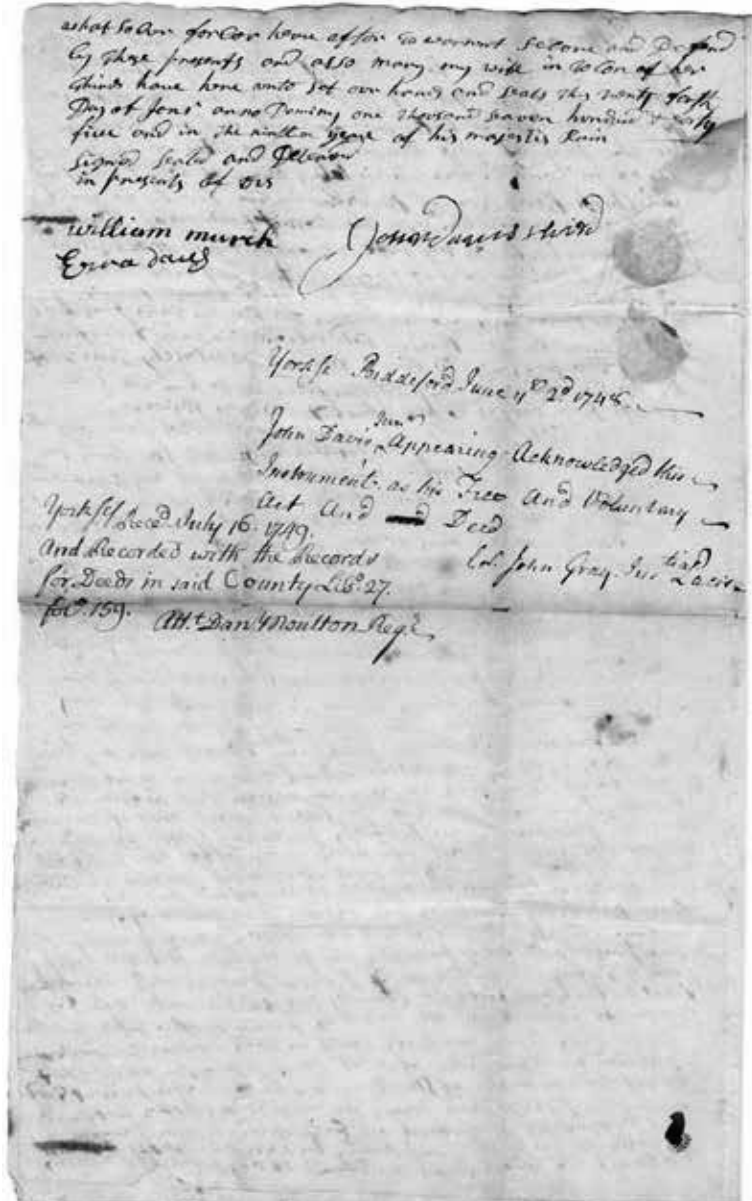 what so Avr forEvr heare after to warrant Secone and Defend
by these presents and also mary my wife in token of her
thirds have here unto set our hands and seals this twenty forth
Day of Jens anno Dominy one thousand seaven hundred & forty
five and in the ninth year of his majestis Rain
Signed sealed and Deleaverd
in presents of us
William murch
Ezra davis
John Davis
York ss Biddeford June ye 2d 1748
John Davis Junr Appearing Acknowledged this
Instrument as his Free And Voluntary
Act And Deed
Cor. John Gray Jus
York ss Recd July 16. 1749
And Recorded with the Records
for Deeds in said County Libo. 27.
fol. 159.
Att.t Danl Moulton Regr